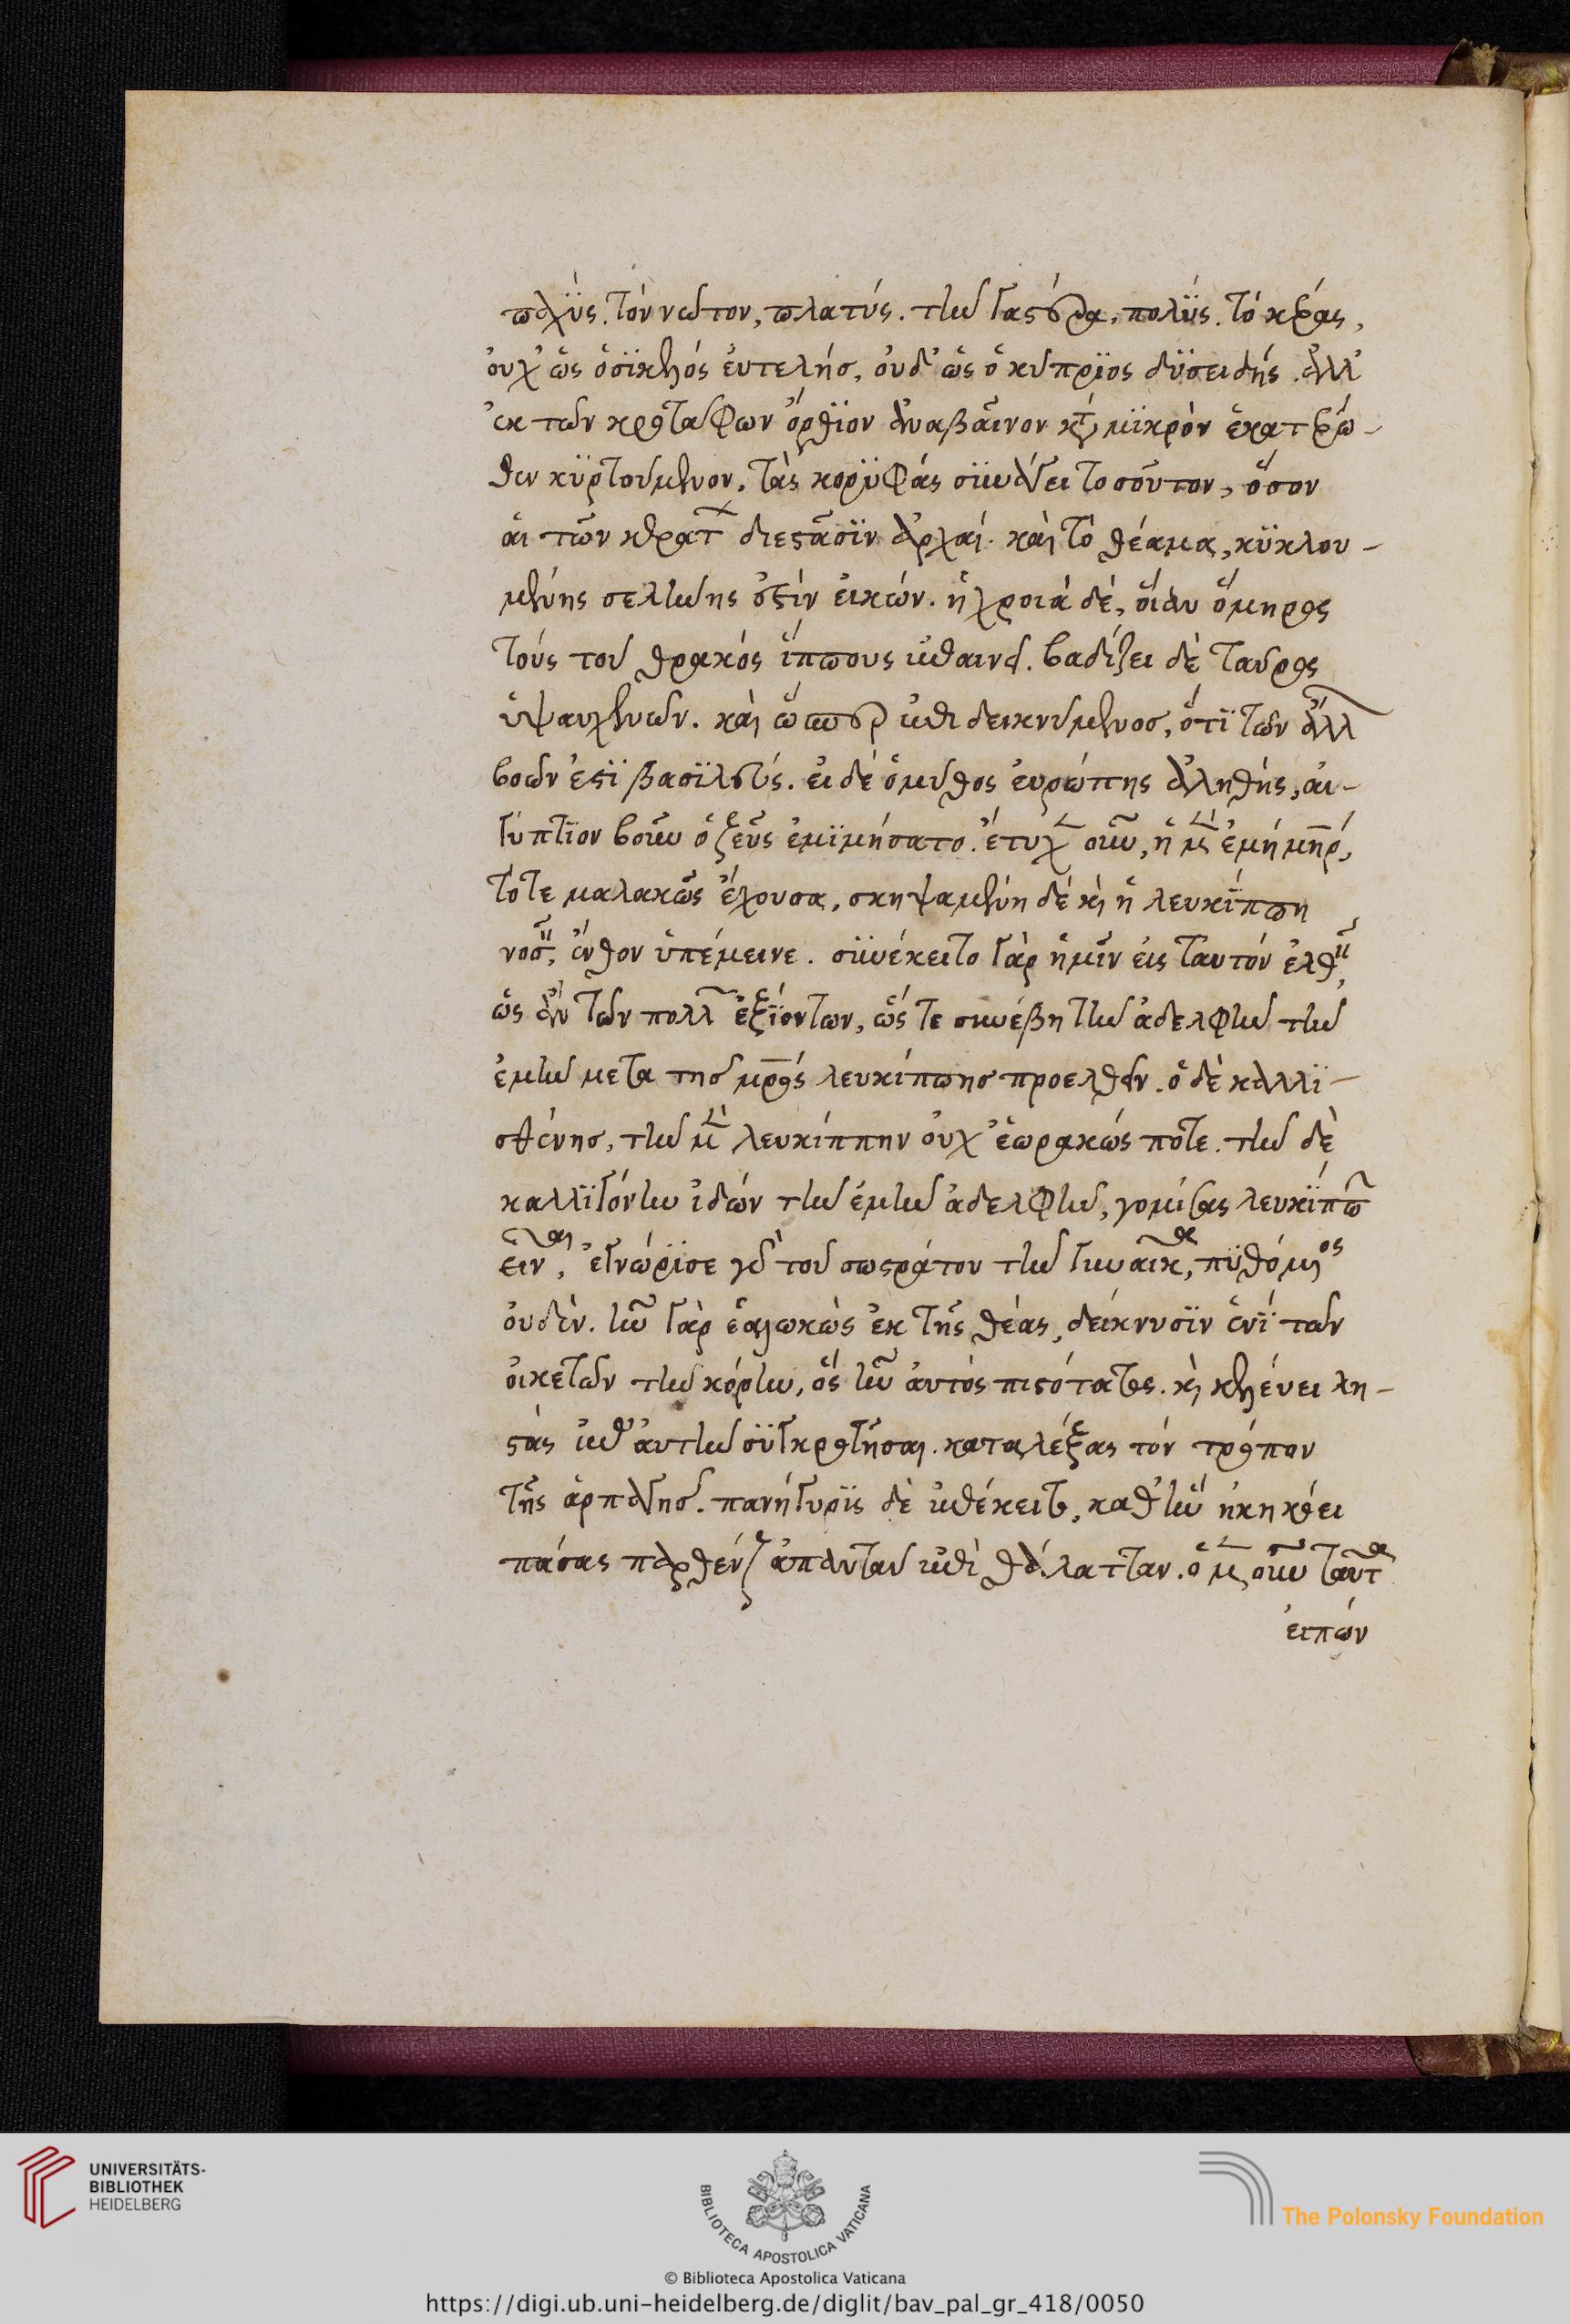 παχὺς. τὸν νῶτον, πλατύς. τὴν γαστέρα, πολύς. τὸ κέρας,
οὐχ ὡς ὁ σικελὸς εὐτελὴς, οὐδ' ὡς ὁ κύπριος δυσειδής. ἀλλ'
ἐκ τῶν κροτάφων ὄρθιον ἀναβαῖνον κατὰ μικρὸν ἑκατέρω-
θεν κυρτούμενον. τὰς κορυφὰς συνάγει τοσοῦτον, ὅσον
αἱ τῶν κεράτων διεστᾶσιν ἀρχαί. καὶ τὸ θέαμα, κυκλου-
μένης σελήνης ἐστὶν εἰκών. ἡ χροιὰ δὲ, οἵαν ὅμηρος
τοὺς τοῦ θρακὸς ἵππους ἐπαινεῖ. βαδίζει δὲ ταῦρος
ὑψαυχενῶν. καὶ ὥσπερ ἐπιδεικνύμενος, ὅτι τῶν ἄλλων
βοῶν ἐστι βασιλεύς. εἰ δὲ ὁ μῦθος εὐρώπης ἀληθὴς, αἰ-
γύπτιον βοῦν ὁ ζεὺς ἐμιμήσατο. ἔτυχεν οὖν, ἡ μὲν ἐμὴ μήτηρ,
τότε μαλακῶς ἔχουσα, σκηψαμένη δὲ καὶ ἡ λευκίππη
νοσεῖν, ἔνδον ὑπέμεινε. συνέκειτο γὰρ ἡμῖν εἰς ταυτὸν ἐλθεῖν,
ὡς ἂν τῶν πολλῶν ἐξιόντων, ὥς τε συνέβη τὴν ἀδελφὴν τὴν
ἐμὴν μετὰ τῆς μητρὸς λευκίππης προελθεῖν. ὁ δὲ καλλι-
σθένης, τὴν μὲν λευκίππην οὐχ ἑωρακώς ποτε. τὴν δὲ
καλλιγόνην ἰδὼν τὴν ἐμὴν ἀδελφὴν, νομίσας λευκίππην
εἶναι, ἐγνώρισε γὰρ τοῦ σωστράτου τὴν γυναῖκα, πυθόμενος
οὐδέν. ἦν γὰρ ἑαλωκὼς ἐκ τῆς θέας, δείκνυσιν ἑνὶ τῶν
οἰκετῶν τὴν κόρην, ὃς ἦν αὐτὸς πιστότατος. καὶ κελεύει λῃ-
στὰς ἐπ' αὐτὴν συγκροτῆσαι. καταλέξας τὸν τρόπον
τῆς ἁρπαγῆς. πανήγυρις δὲ ἐπέκειτο, καθ' ἣν ἠκηκόει
πάσας παρθένους ἀπαντᾶν ἐπὶ θάλατταν. ὁ μὲν οὖν ταῦτα
εἰπὼν
UNIVERSITÄTS-
BIBLIOTHEK
HEIDELBERG
BIBLIOTECA APOSTOLICA VATICANA
The Polonsky Foundation
© Biblioteca Apostolica Vaticana
https://digi.ub.uni-heidelberg.de/diglit/bav_pal_gr_418/0050